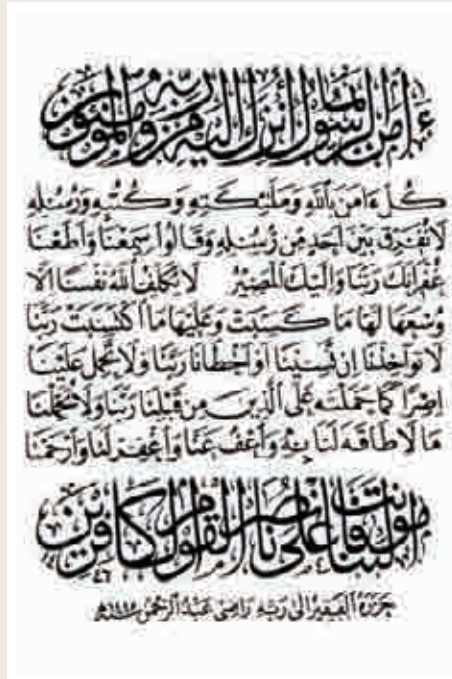 ءامن الرسول بما أنزل إليه من ربه والمؤمنون
كُلٌّ ءَامَنَ بِاللَّهِ وَمَلَـٰٓئِكَتِهِ وَكُتُبِهِ وَرُسُلِهِ
لَا نُفَرِّقُ بَيْنَ أَحَدٍ مِن رُسُلِهِ وَقَالُوا سَمِعْنَا وَأَطَعْنَا
غُفْرَانَكَ رَبَّنَا وَإِلَيْكَ الْمَصِيرُ لَا يُكَلِّفُ اللَّهُ نَفْسًا إِلَّا
وُسْعَهَا لَهَا مَا كَسَبَتْ وَعَلَيْهَا مَا اكْتَسَبَتْ رَبَّنَا
لَا تُؤَاخِذْنَا إِن نَّسِينَا أَوْ أَخْطَأْنَا رَبَّنَا وَلَا تَحْمِلْ عَلَيْنَا
إِصْرًا كَمَا حَمَلْتَهُ عَلَى الَّذِينَ مِن قَبْلِنَا رَبَّنَا وَلَا تُحَمِّلْنَا
مَا لَا طَاقَةَ لَنَا بِهِ وَاعْفُ عَنَّا وَاغْفِرْ لَنَا وَارْحَمْنَا
أنت مولانا فانصرنا على القوم الكافرين
حرره الفقير إلى ربه راضي عبد الرحمن